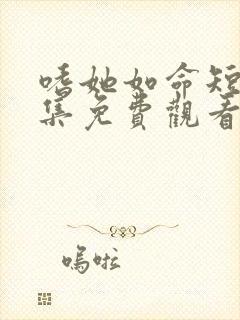 嗜她如命短
集免費觀看
嗚啦